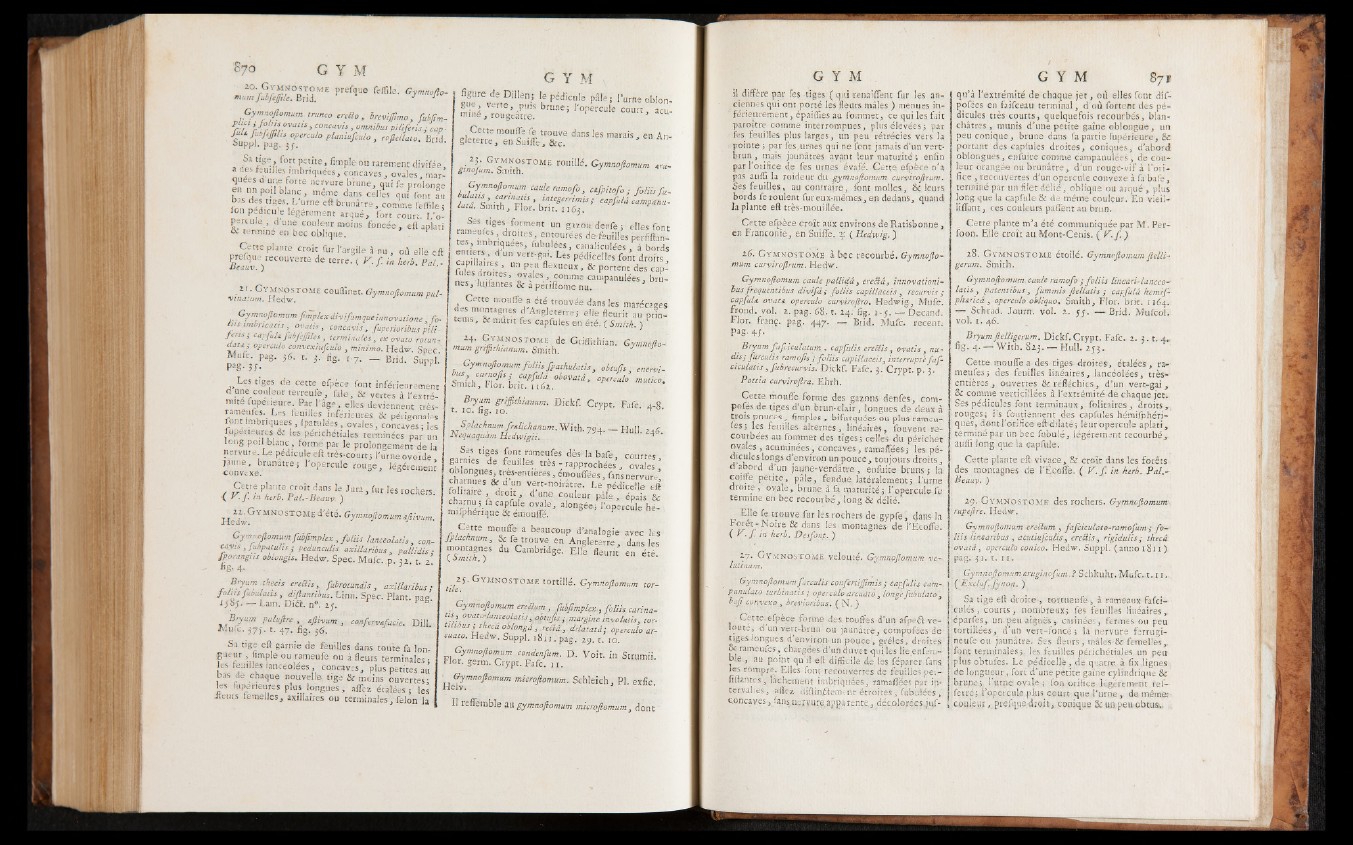 870 G Y M
20. GYMNOSTOME presque sessile. Gymnosto-
mum subsessile. Brid.
Gymnostomum trunco erecto, brevissimo, subsim-
plici; foliis ovatis, concavis, omnibus piliferis; cap-
sulâ subsessilis operculo planiusculo, rostellato. Brid.
Suppl. pag. 35.
Sa tige, fort petite, simple ou rarement divisée,
a des feuilles imbriquées, concaves, ovales, mar-
quées d'une forte nervure brune, qui se prolonge
en un poil blanc, même dans celles qui sont au
bas des tiges. L'urne est brunâtre, comme sessile;
son pédicule légérement arqué, fort court. L'o-
percule, d'une couleur moins foncée, est aplati
& terminé en bec oblique.
Cette plante croît sur l'argile à nu, où elle est
presque recouverte de terre. ( V. s. in herb. Pal.-
Beauv. )
21. GYMNOSTOME coussinet. Gymnostomum pul-
vinatum. Hedw.
Gymnostomum simplex divisumque innovatione, fo-
liis imbricatis, ovatis, concavis, superioribus pili-
feris; capsulâ subsessiles, terminales, ex ovato rotun-
data; operculo convexiusculo, minimo. Hedw. Spec.
Musc. pag. 36. t. 3. fig. 1-7. — Brid. Suppl.
pag. 35.
Les tiges de cette espèce sont inférieurement
d'une couleur terreuse, sale, & vertes à l'extré-
mité supérieure. Par l'âge, elles deviennent très-
rameuses. Les feuilles inférieures & périgonales
sont imbriquées, spatulées, ovales, concaves; les
supérieures & les périchétiales terminées par un
long poil blanc, formé par le prolongement de la
nervure. Le pédicule est très-court; l'urne ovorde,
jaune, brunâtre; l'opercule rouge, légérement
convexe.
Cette plante croît dans le Jura, sur les rochers.
( V. s. in herb. Pal.-Beauv. )
22. GYMNOSTOME d'été. Gymnostomum æstivum.
Hedw.
Gymnostomum subsimplex, foliis lanceolatis, con-
cavis, subpatulis; pedunculis axillaribus, pallidis;
sporangiis oblongis. Hedw. Spec. Musc. p. 32. t. 2.
fig. 4.
Bryum thecis erectis, subrotundis, axillaribus;
foliis subulatis, distantibus. Linn. Spec. Plant. pag.
1585. — Lam. Dict. n°. 25.
Bryum palustre, æstivum, confervæfacie. Dill.
Musc. 375. t. 47. fig. 36.
Sa tige est garnie de feuilles dans toute sa lon-
gueur, simple ou rameuse ou à fleurs terminales;
les feuilles lancéolées, concaves, plus petites au
bas de chaque nouvelle tige & moins ouvertes;
les supérieures plus longues, assez étalées; les
fleurs femelles, axillaires ou terminales, selon la
G Y M
figure de Dillen; le pédicule pâle; l'urne oblon-
gue, verte, puis brune; l'opercule court, acu-
miné, rougeâtre.
Cette mousse se trouve dans les marais, en An-
gleterre, en Suisse, &c.
23. GYMNOSTOME rouillé. Gymnostomum æru-
ginosum. Smith.
Gymnostomum caule ramoso, cæspitoso; foliis su-
bulatis, carinatis, integerrimis; capsulâ campanu-
latâ. Smith, Flor. brit. 1163.
Ses tiges forment un gazon dense; elles sont
rameuses, droites, entourées de feuilles persistan-
tes, imbriquées, subulées, canaliculées, à bords
entiers, d'un vert-gai. Les pédicelles sont droits,
capillaires, un peu flexueux, & portent des cap-
sules droites, ovales, comme campanulées, bru-
nes, luisantes & à péristome nu.
Cette mousse a été trouvée dans les marécages
des montagnes d'Angleterre; elle fleurit au prin-
tems, & mûrit ses capsules en été. ( Smith. )
24. GYMNOSTOME de Griffithian. Gymnosto-
mum griffithianum. Smith.
Gymnostomum foliis spathulatis, obtusis, enervi-
bus, carnosis; capsulâ obovatâ, operculo mutico.
Smith, Flor. brit. 1162.
Bryum griffithianum. Dickf. Crypt. Fasc. 4-8.
t. 10. fig. 10.
Splachnum frœlichanum. With. 794. — Hull. 246.
Nequaquàm Hedwigii.
Ses tiges sont rameuses dès la base, courtes,
garnies de feuilles très-rapprochées, ovales,
oblongues, très-entières, émoussées, sans nervure,
charnues & d'un vert-noirâtre. Le pédicelle est
solitaire, droit, d'une couleur pâle, épais &
charnu; sa capsule ovale, alongée; l'opercule hé-
misphérique & émoussé.
Cette mousse a beaucoup d'analogie avec les
splachnum, & se trouve en Angleterre, dans les
montagnes du Cambridge. Elle fleurit en été.
( Smith. )
25. GYMNOSTOME tortillé. Gymnostomum tor-
tile.
Gymnostomum erectum, subsimplex, foliis carina-
tis, ovato-lanceolatis, obtusis, margine involutis, tor-
tilibus; thecâ oblongâ, rectâ, dilatatâ; operculo ar-
cuato. Hedw. Suppl. 1811. pag. 29. t. 10.
Gymnostomum condensum. D. Voit. in Strumii.
Flor. germ. Crypt. Fasc. 11.
Gymnostomum microstomum. Schleich, Pl. exsic.
Helv.
Il ressemble au gymnostomum microstomum, dont
G Y M
il diffère par ses tiges ( qui renaissent sur les an-
ciennes qui ont porté les fleurs mâles ) menues in-
férieurement, épaissies au sommet, ce qui les fait
paroître comme interrompues, plus élevées; par
ses feuilles plus larges, un peu rétrécies vers la
pointe; par ses urnes qui ne sont jamais d'un vert-
brun, mais jaunâtres avant leur maturité; enfin
par l'orifice de ses urnes évasé. Cette espèce n'a
pas aussi la roideur du gymnostomum curvirostrum.
Ses feuilles, au contraire, sont molles, & leurs
bords se roulent sur eux-mêmes, en dedans, quand
la plante est très-mouillée.
Cette espèce croît aux environs de Ratisbonne,
en Franconie, en Suisse. ♃ ( Hedwig. )
26. GYMNOSTOME à bec recourbé. Gymnosto-
mum curvirostrum. Hedw.
Gymnostomum caule pallidâ, erectâ, innovationi-
bus frequentibus divisâ; foliis capillaceis, recurvis;
capsulâ ovatâ operculo curvirostro. Hedwig, Musc.
frond. vol. 2. pag. 68. t. 24. fig. 1-5. — Decand.
Flor. franç. pag. 447. — Brid. Musc. recent.
pag. 45.
Bryum fasciculatum, capsulis erectis, ovatis, nu-
dis; surculis ramosis; foliis capillaceis, interruptè fas-
ciculatis, subrecurvis. Dickf. Fasc. 3. Crypt. p. 3.
Pottia curvirostra. Ehrh.
Cette mousse forme des gazons denses, com-
posés de tiges d'un brun-clair, longues de deux à
trois pouces, simples, bifurquées ou plus rameu-
ses; les feuilles alternes, linéaires, souvent re-
courbées au sommet des tiges; celles du périchet
ovales, acuminées, concaves, ramassées; les pé-
dicules longs d'environ un pouce, toujours droits,
d'abord d'un jaune-verdâtre, ensuite bruns; la
coiffe petite, pâle, fendue latéralement; l'urne
droite, ovale, brune à sa maturité; l'opercule se
termine en bec recourbé, long & délié.
Elle se trouve sur les rochers de gypse, dans la
Forêt-Noire & dans les montagnes de l'Ecosse.
( V. s. in herb. Desfont. )
27. GYMNOSTOME velouté. Gymnostomum ve-
lutinum.
Gymnostomum surculis confertissimis; capsulis cam-
panulato turbinatis; operculo arcuato, longè subulato,
basi convexo, brevioribus. ( N. )
Cette espèce forme des touffes d'un aspect ve-
louté, d'un vert-brun ou jaunâtre, composées de
tiges longues d'environ un pouce, grêles, droites
& rameuses, chargées d'un duvet qui les lie ensem-
ble, au point qu'il est difficile de les séparer sans
les rompre. Elles sont recouvertes de feuilles per-
sistantes, lâchement imbriquées, ramassées par in-
tervalles, assez distinctement étroites, subulées,
concaves, sans nervure apparente, décolorées jus-
G Y M 871
qu'à l'extrémité de chaque jet, où elles sont dis-
posées en faisceau terminal, d'où sortent des pé-
dicules très courts, quelquefois recourbés, blan-
châtres, munis d'une petite gaîne oblongue, un
peu conique, brune dans sa partie supérieure, &
portant des capsules droites, coniques, d'abord
oblongues, ensuite comme campanulées, de cou-
leur orangée ou brunâtre, d'un rouge-vif à l'ori-
fice, recouvertes d'un opercule convexe à sa base,
terminé par un filet délié, oblique ou arqué, plus
long que la capsule & de même couleur. En vieil-
lissant, ces couleurs passent au brun.
Cette plante m'a été communiquée par M. Per-
soon. Elle croît au Mont-Cenis. ( V. s. )
28. GYMNOSTOME étoilé. Gymnostomum stelli-
gerum. Smith.
Gymnostomum caule ramoso; foliis lineari-lanceo-
latis, patentibus, summis stellatis; capsulâ hemis-
phæricâ, operculo obliquo. Smith, Flor. brit. 1164.
— Schrad. Journ. vol. 2. 55. — Brid. Muscol.
vol. 1. 46.
Bryum stelligerum. Dickf. Crypt. Fasc. 2. 3. t. 4.
fig. 4. — With. 823. — Hull. 253.
Cette mousse a des tiges droites, étalées, ra-
meuses; des feuilles linéaires, lancéolées, très-
entières, ouvertes & réfléchies, d'un vert-gai,
& comme verticillées à l'extrémité de chaque jet.
Ses pédicules sont terminaux, solitaires, droits,
rouges; ils soutiennent des capsules hémisphéri-
ques, dont l'orifice est dilaté; leur opercule aplati,
terminé par un bec subulé, légérement recourbé,
aussi long que la capsule.
Cette plante est vivace, & croît dans les forêts
des montagnes de l'Ecosse. ( V. s. in herb. Pal.-
Beauv. )
29. GYMNOSTOME des rochers. Gymnostomum
rupestre. Hedw.
Gymnostomum erectum, fasciculato-ramosum; fo-
liis linearibus, acutiusculis, erectis, rigidulis; thecâ
ovatâ, operculo conico. Hedw. Suppl. (anno 1811)
pag. 31. t. 11.
Gymnostomum æruginosum.? Schkuhr. Musc. t. 11.
( Exclus. synon. )
Sa tige est droite, tortueuse, à rameaux fasci-
culés, courts, nombreux; ses feuilles linéaires,
éparses, un peu aiguës, carinées, fermes ou peu
tortillées, d'un vert-foncé; la nervure ferrugi-
neuse ou jaunâtre. Ses fleurs, mâles & femelles,
sont terminales; les feuilles périchétiales un peu
plus obtuses. Le pédicelle, de quatre à six lignes
de longueur, sort d'une petite gaîne cylindrique &
brune; l'urne ovale; son orifice légérement res-
serré; l'opercule plus court que l'urne, de même
couleur, presque droit, conique & un peu obtus.